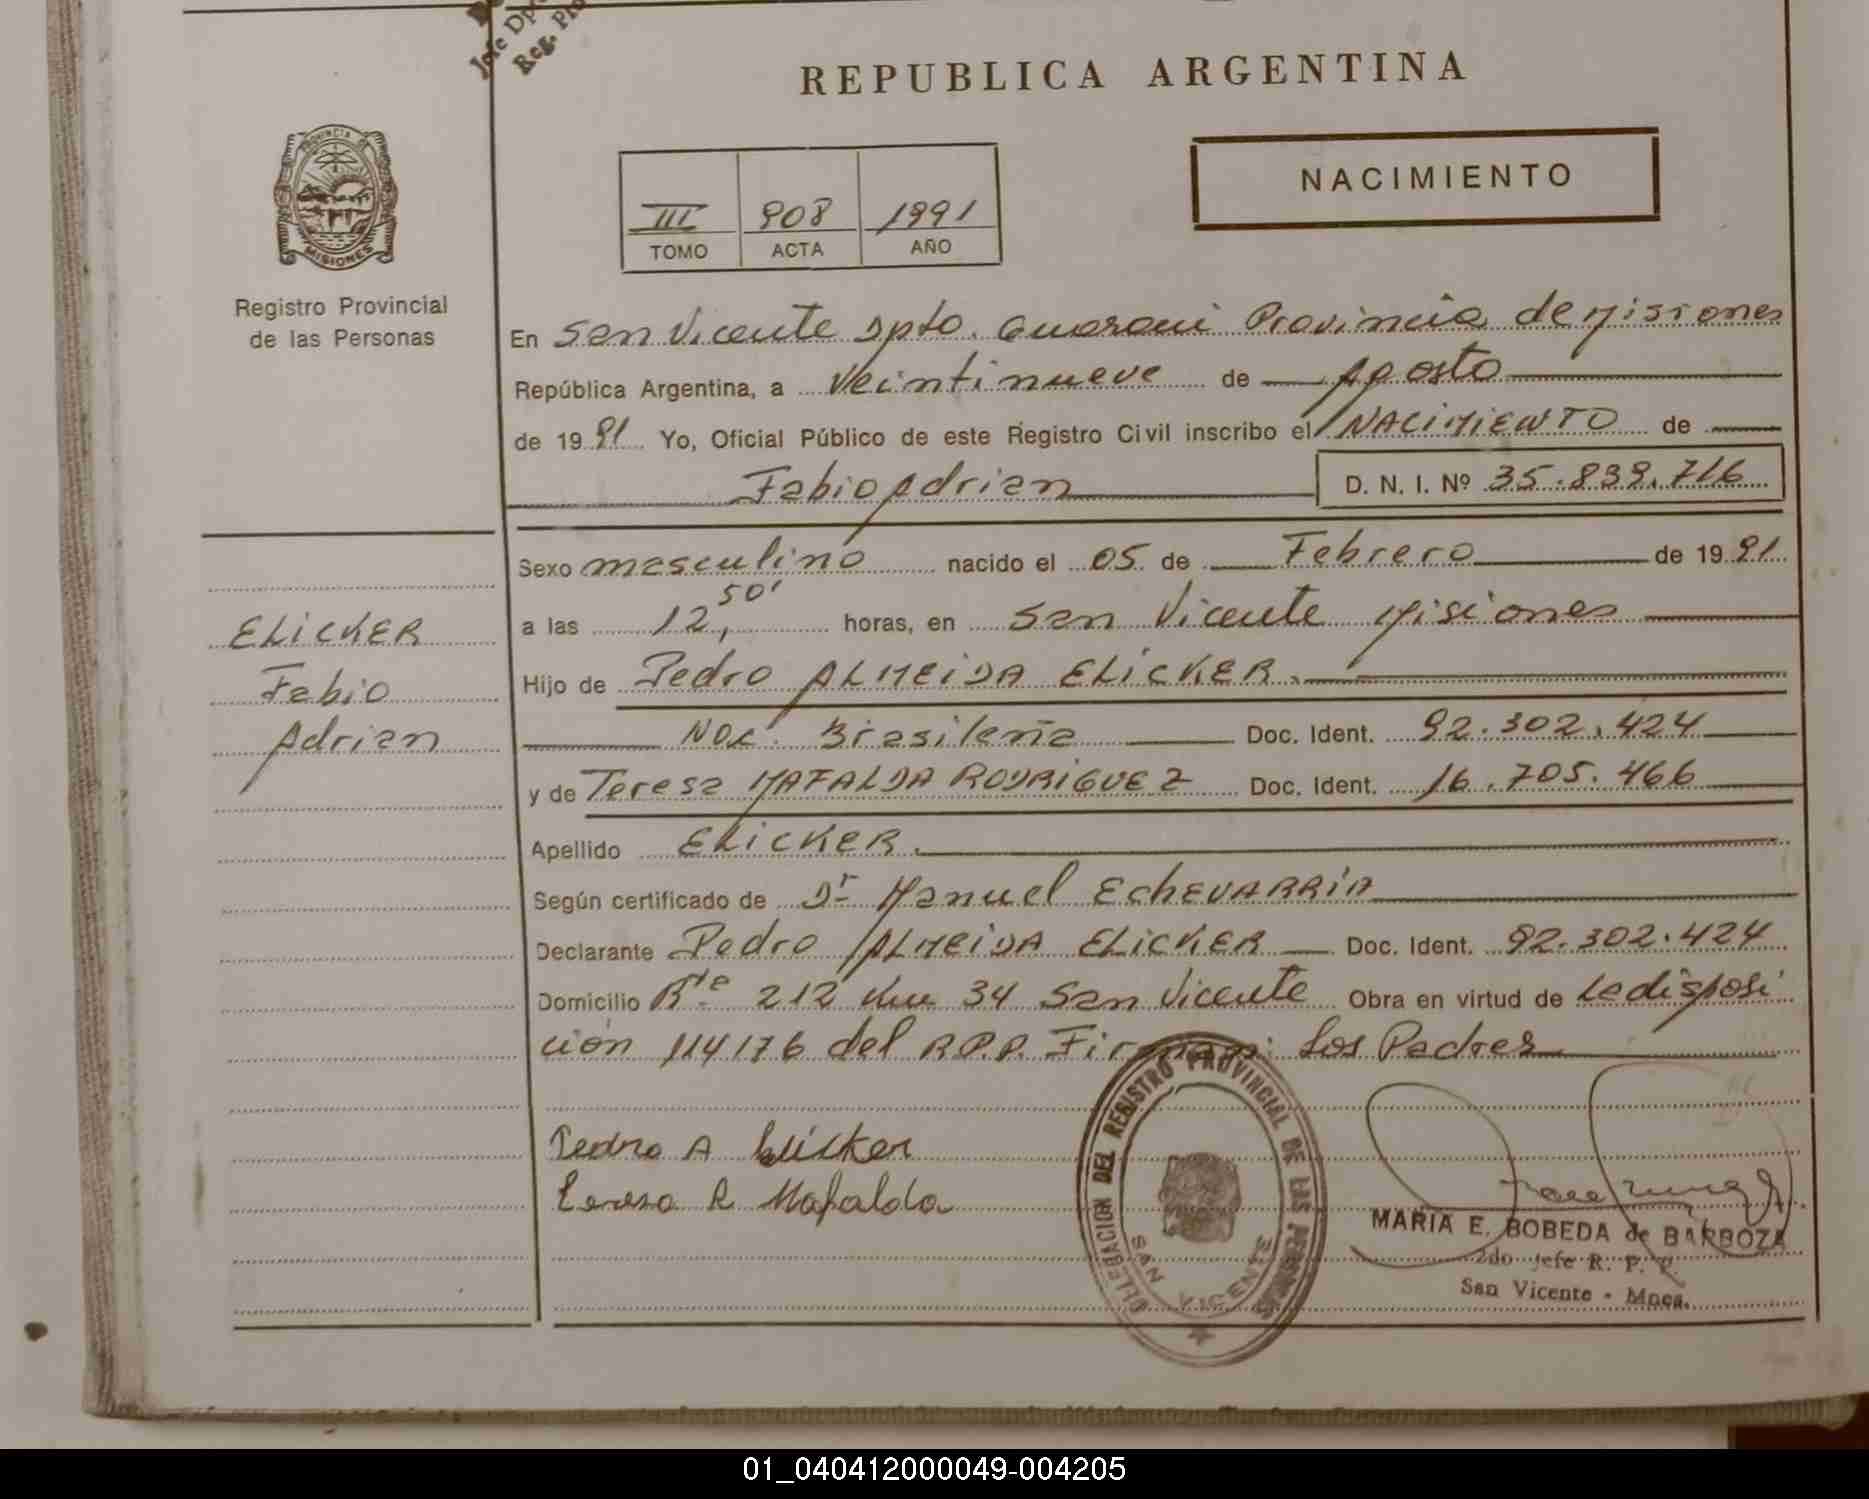 Jefe Dpt
Reg. Pro
REPUBLICA ARGENTINA
PROVINCIA DE
MISIONES
Registro Provincial
de las Personas
III 908 1991
TOMO ACTA AÑO
NACIMIENTO
En San Vicente Dpto. Guarani Provincia de Misiones
República Argentina, a veintinueve de Agosto
de 1991 Yo, Oficial Público de este Registro Civil inscribo el NACIMIENTO de
Fabio Adrian D. N. I. Nº 35.839.716
Sexo masculino nacido el 05 de Febrero de 1991
a las 12,50' horas, en San Vicente Misiones
Hijo de Pedro ALMEIDA ELICKER.
Nac. Brasileña Doc. Ident. 92.302.424
y de Teresa MAFALDA RODRIGUEZ Doc. Ident. 16.705.466
Apellido ELICKER.
Según certificado de Dr Manuel ECHEVARRIA
Declarante Pedro ALMEIDA ELICKER Doc. Ident. 92.302.424
Domicilio Rte 212 Km 34 San Vicente Obra en virtud de la disposi
ción 114176 del R.P.P. Firman: Los Padres
ELICKER
Fabio
Adrian
Pedro A Elicker
Teresa R Mafalda
DELEGACION DEL REGISTRO PROVINCIAL DE LAS PERSONAS
SAN VICENTE
MARIA E. BOBEDA de BARBOZA
2do Jefe R. P. P.
San Vicente - Mnes.
01_040412000049-004205